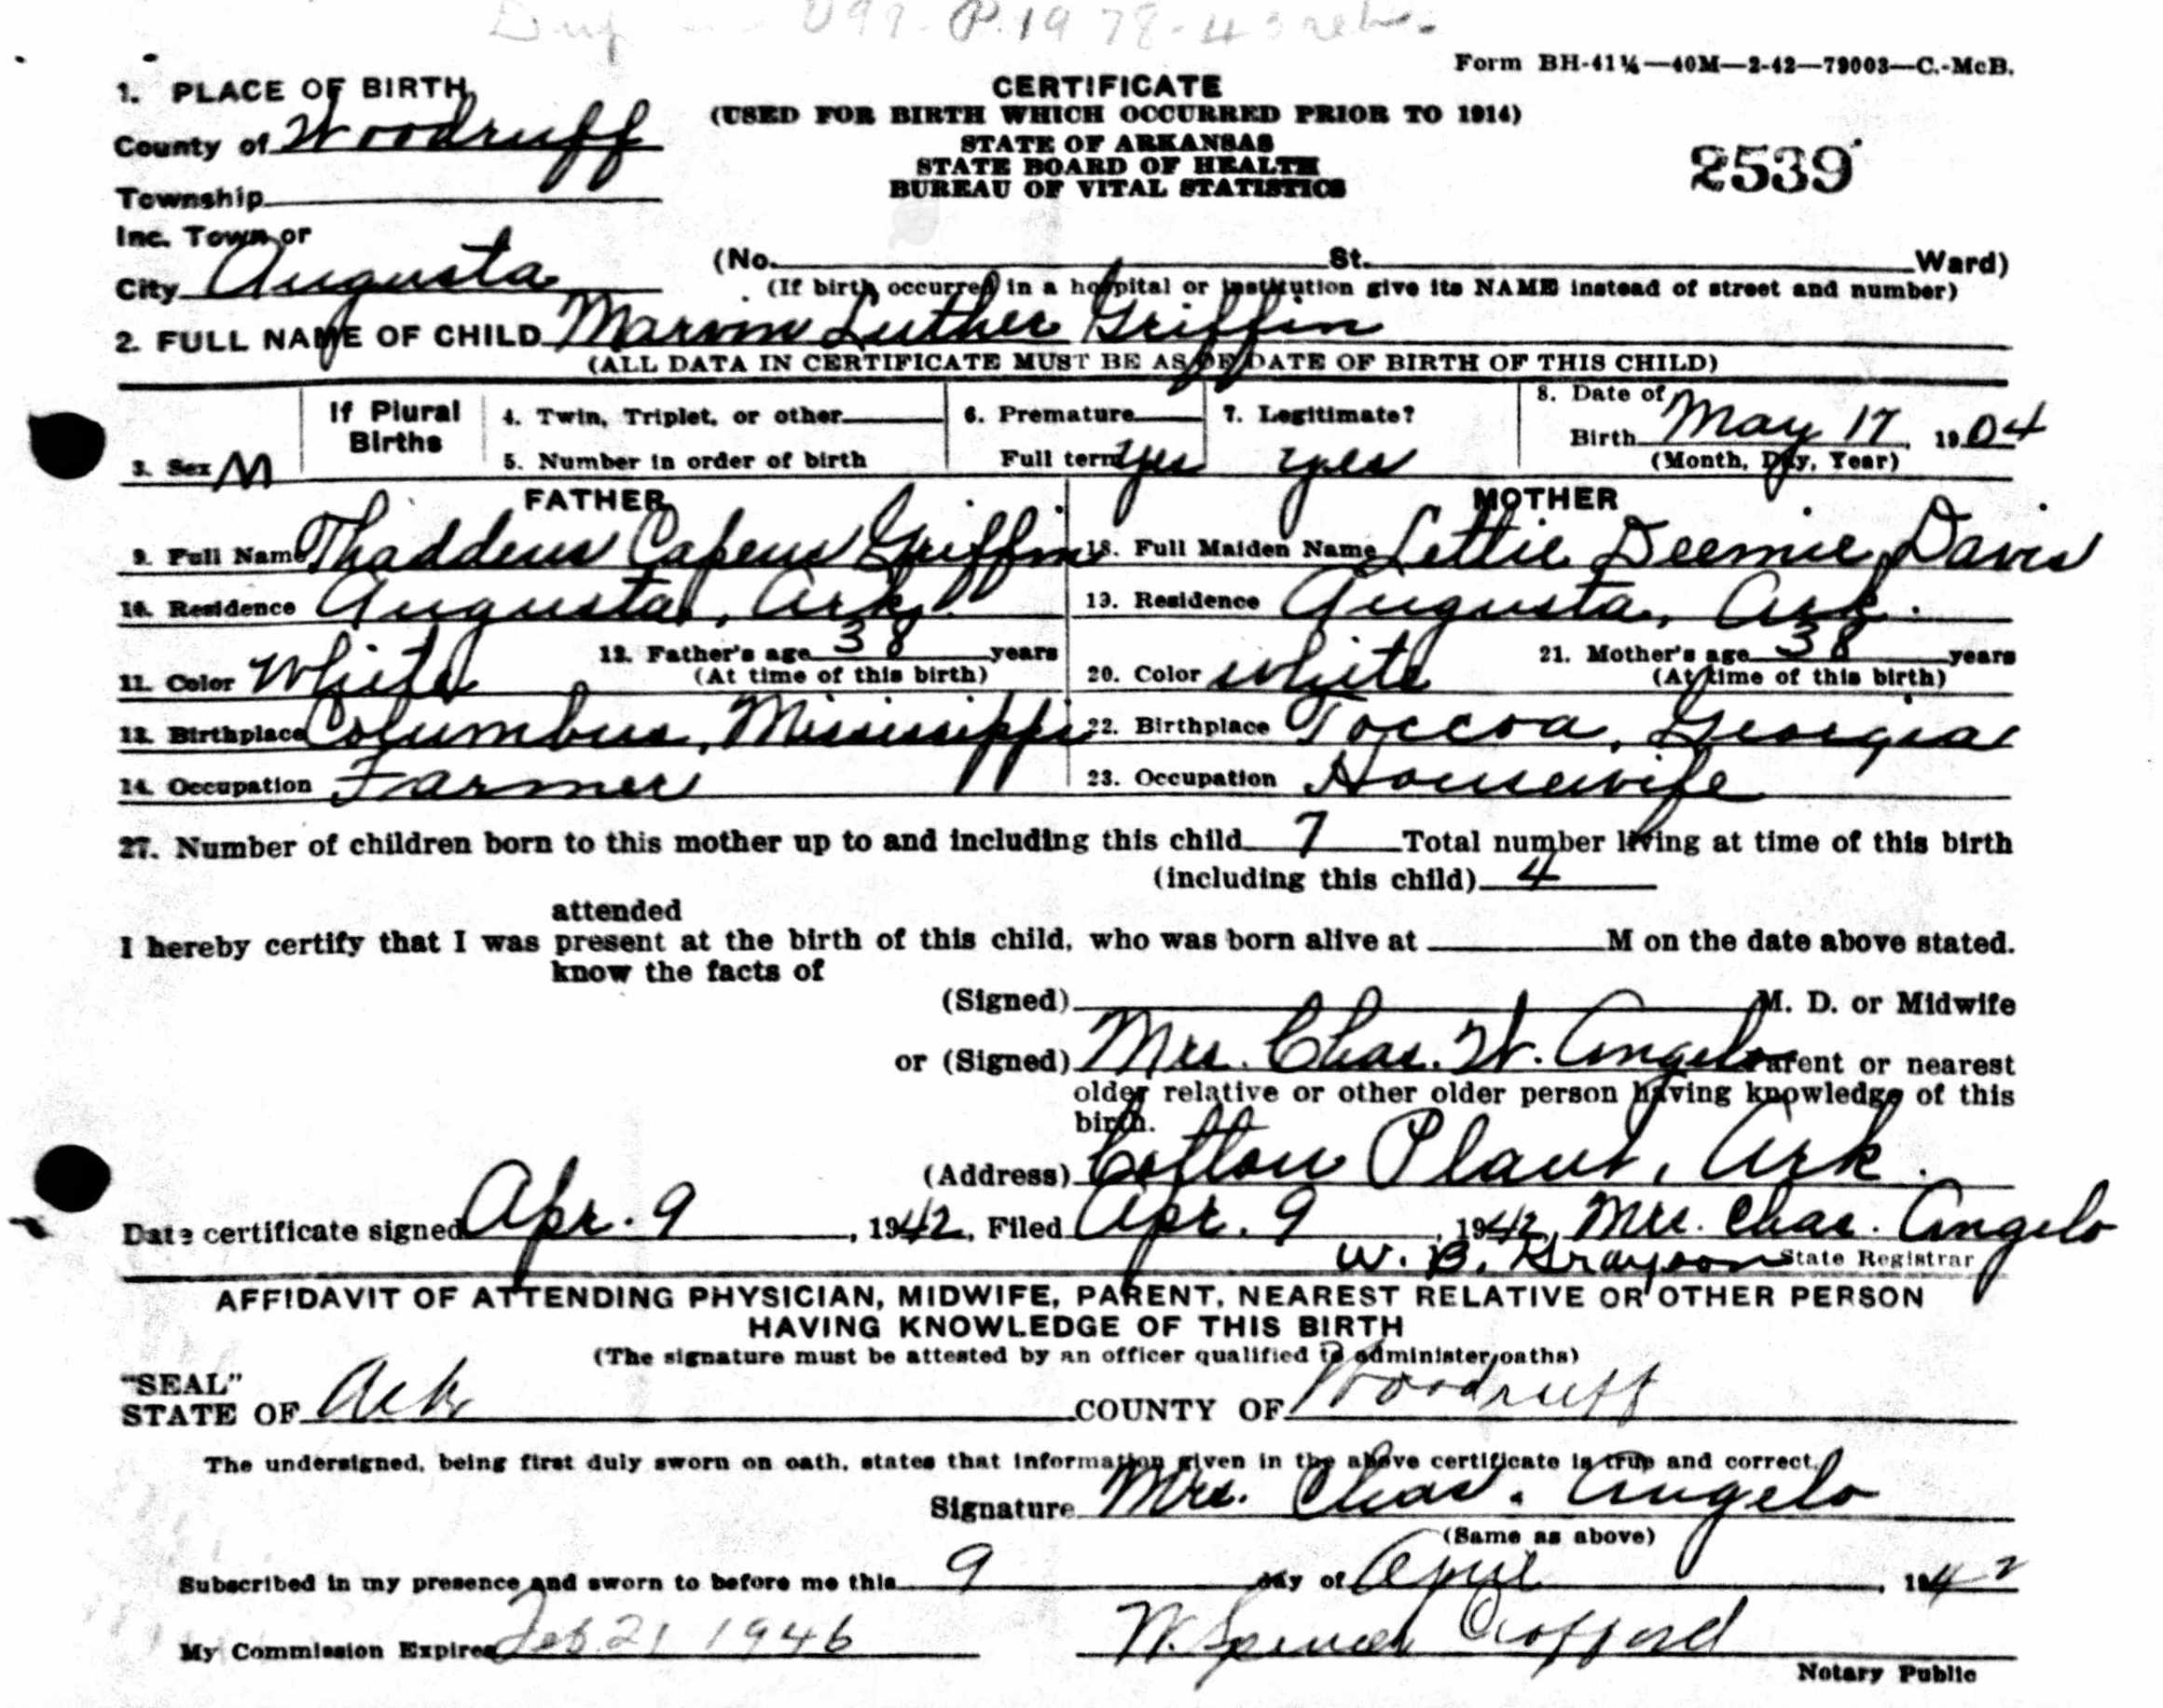 P. 1978-43
Form BH-41¼—40M—2-42—79003—C.-McB.
1. PLACE OF BIRTH
CERTIFICATE
(USED FOR BIRTH WHICH OCCURRED PRIOR TO 1914)
County of Woodruff
STATE OF ARKANSAS
STATE BOARD OF HEALTH
2539
BUREAU OF VITAL STATISTICS
Township
Inc. Town or
City Augusta
(No. St. Ward)
(If birth occurred in a hospital or institution give its NAME instead of street and number)
2. FULL NAME OF CHILD Marvin Luther Griffin
(ALL DATA IN CERTIFICATE MUST BE AS OF DATE OF BIRTH OF THIS CHILD)
3. Sex M
If Plural Births
4. Twin, Triplet, or other
5. Number in order of birth
6. Premature
Full term yes
7. Legitimate?
yes
8. Date of
Birth May 17, 1904
(Month, Day, Year)
FATHER
MOTHER
9. Full Name Thaddeus Capeus Griffin
18. Full Maiden Name Lettie Deemie Davis
10. Residence Augusta, Ark.
19. Residence Augusta, Ark.
11. Color White
12. Father's age 38 years
(At time of this birth)
20. Color white
21. Mother's age 38 years
(At time of this birth)
13. Birthplace Columbus, Mississippi
22. Birthplace Toccoa, Georgia
14. Occupation Farmer
23. Occupation Housewife
27. Number of children born to this mother up to and including this child 7 Total number living at time of this birth
(including this child) 4
attended
I hereby certify that I was present at the birth of this child, who was born alive at M on the date above stated.
know the facts of
(Signed) M. D. or Midwife
or (Signed) Mrs. Chas. W. Angelo parent or nearest
older relative or other older person having knowledge of this
birth.
(Address) Cotton Plant, Ark.
Date certificate signed Apr. 9, 1942, Filed Apr. 9, 1942, Mrs. Chas. Angelo
W. B. Grayson State Registrar
AFFIDAVIT OF ATTENDING PHYSICIAN, MIDWIFE, PARENT, NEAREST RELATIVE OR OTHER PERSON
HAVING KNOWLEDGE OF THIS BIRTH
(The signature must be attested by an officer qualified to administer oaths)
"SEAL"
STATE OF Ark COUNTY OF Woodruff
The undersigned, being first duly sworn on oath, states that information given in the above certificate is true and correct.
Signature Mrs. Chas. Angelo
(Same as above)
Subscribed in my presence and sworn to before me this 9 day of April, 1942
My Commission Expires Feb. 21 1946
W. Spencer Crofford
Notary Public